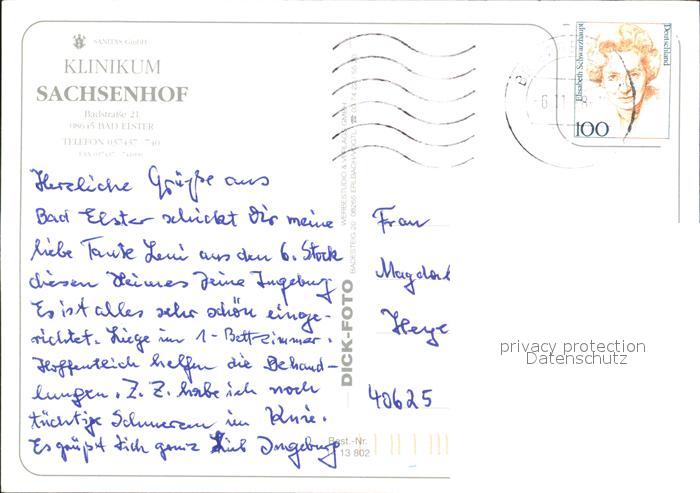 SANITAS GmbH
KLINIKUM
SACHSENHOF
Badstraße 21
08645 BAD ELSTER
TELEFON 037437 - 740
Herzliche Grüße aus
Bad Elster schickt Dir meine
liebe Tante Leni aus den 6. Stock
diesen Heimes Deine Ingeburg
Es ist alles sehr schön einge-
richtet. Liege im 1-Bettzimmer.
Hoffentlich helfen die Behand-
lungen. Z. Z. habe ich noch
tüchtige Schmerzen im Knie.
Es grüßt Dich ganz lieb Ingeburg
DICK-FOTO
WERBESTUDIO & VERLAGS GMBH
BADESTEIG 20 08265 ERLBACH
Best.-Nr.
13 802
Elisabeth Schwarzhaupt
Deutschland
100
Frau
Heye
40625
privacy protection
Datenschutz